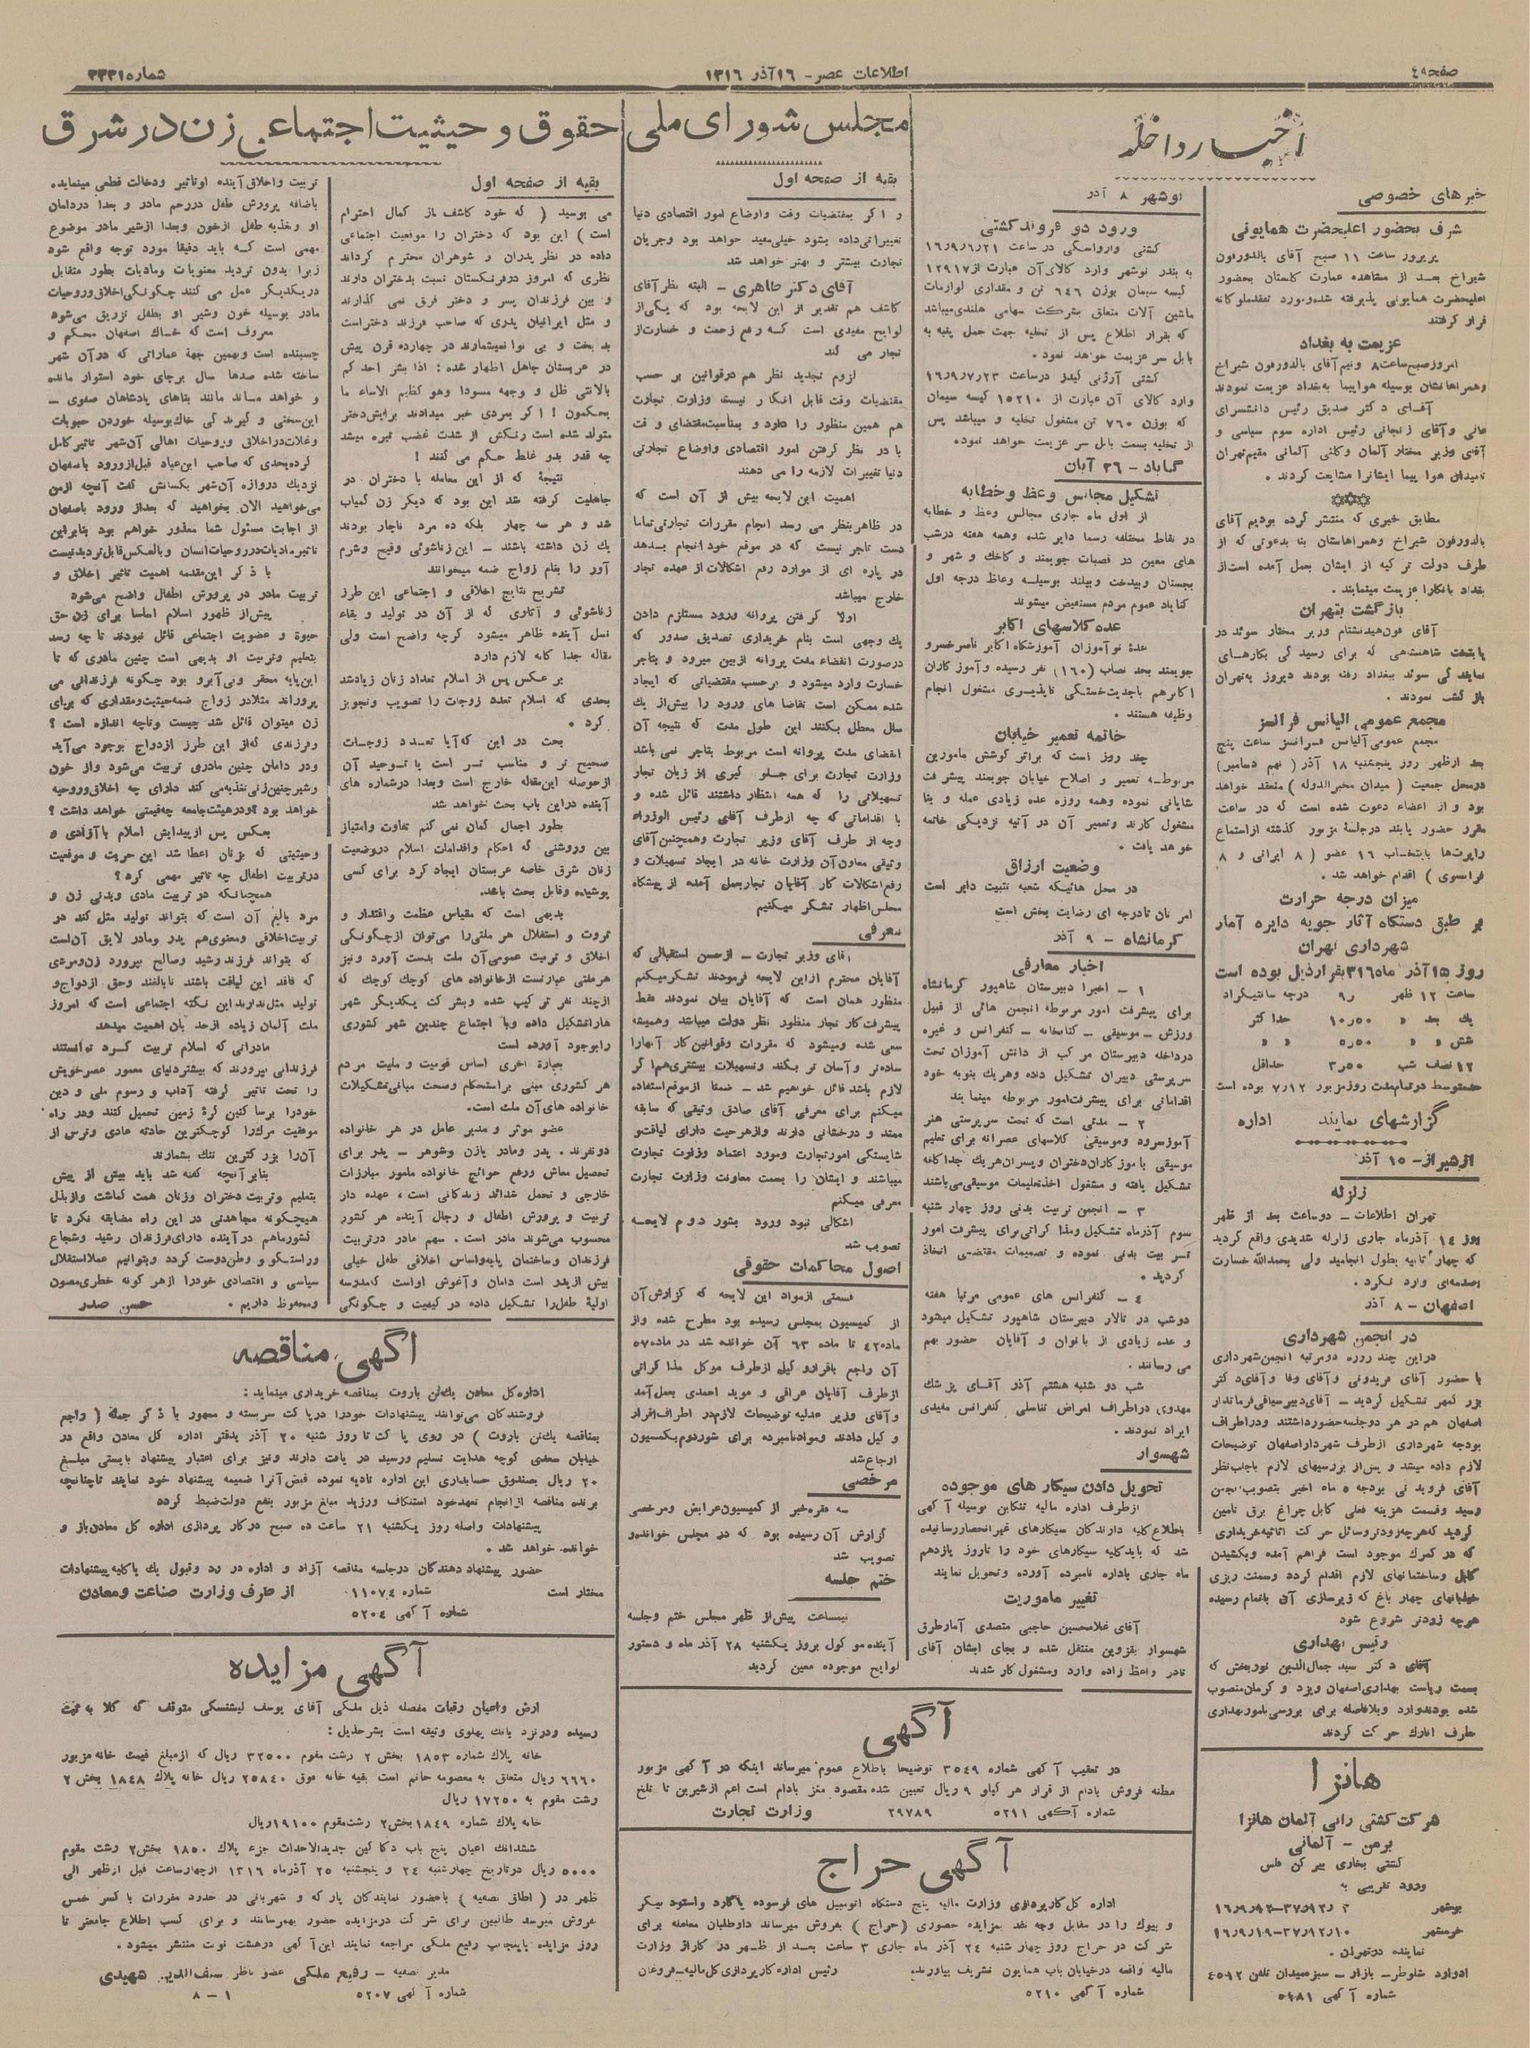 صفحه ۴
اطلاعات عصر - ۱۶ آذر ۱۳۱۶
شماره ۳۳۳۱
اخبار داخله
خبرهای خصوصی
شرف بحضور اعلیحضرت همایونی
پریروز ساعت ۱۱ صبح آقای بالدورفون
شیراخ بعد از مشاهده عمارت گلستان بحضور
اعلیحضرت همایونی پذیرفته شده و مورد تفقد ملوکانه
قرار گرفتند
عزیمت به بغداد
امروز صبح ساعت ۸ ونیم آقای بالدورفون شیراخ
وهمراهانشان بوسیله هواپیما به بغداد عزیمت نمودند
آقای دکتر صدیق رئیس دانشسرای
عالی وآقای زنجانی رئیس اداره سوم سیاسی و
آقای وزیر مختار آلمان وکلنی آلمانی مقیم تهران
تامیدان هوا پیما ایشانرا مشایعت کردند.
مطابق خبری که منتشر کرده بودیم آقای
بالدورفون شیراخ وهمراهانشان بنا بدعوتی که از
طرف دولت ترکیه از ایشان بعمل آمده است از
بغداد بآنکارا عزیمت مینمایند.
بازگشت بتهران
آقای فون هیدنشتام وزیر مختار سوئد در
پایتخت شاهنشاهی که برای رسیدگی بکارهای
نمایندگی سوئد ببغداد رفته بودند دیروز به تهران
بازگشت نمودند.
مجمع عمومی الیانس فرانسز
مجمع عمومی آلیانس فرانسز ساعت پنج
بعد ازظهر روز پنجشنبه ۱۸ آذر (نهم دسامبر)
درمحل جمعیت (میدان مخبرالدوله) منعقد خواهد
بود و از اعضاء دعوت شده است که در ساعت
مقرر حضور یابند درجلسهٔ مزبور گذشته ازاستماع
راپرت‌ها بانتخاب ۱۶ عضو (۸ ایرانی و ۸
فرانسوی) اقدام خواهد شد.
میزان درجه حرارت
بر طبق دستگاه آثار جویه دایره آمار
شهرداری تهران
روز ۱۵ آذر ماه ۳۱۶ بقرار ذیل بوده است
ساعت ۱۲ ظهر ۹ر درجه سانتیگراد
یك بعد » ۱۰٫۵۰ حداکثر
شش » » ۵٫۵۰ » »
۱۲ نصف شب ۳٫۵۰ حداقل
حدمتوسط درتمام مدت روز مزبور ۷/۱۲ بوده است
گزارشهای نمایندۀ اداره
ازشیراز - ۱۵ آذر
زلزله
تهران اطلاعات - دوساعت بعد از ظهر
روز ۱۴ آذرماه جاری زلزله شدیدی واقع گردید
که چهار ثانیه بطول انجامید ولی بحمدالله خسارت
وصدمه‌ای وارد نکرد.
اصفهان - ۸ آذر
در انجمن شهرداری
دراین چند روزه دومرتبه انجمن شهرداری
با حضور آقای فریدونی و آقای وفا وآقای دکتر
بزرگمهر تشکیل گردید - آقای دبیرسیاقی فرماندار
اصفهان هم در هر دوجلسه حضور داشتند ودراطراف
بودجه شهرداری ازطرف شهرداراصفهان توضیحات
لازم داده میشد و پس از بررسیهای لازم باجلب نظر
آقای فریدونی بودجه ۵ ماه اخیر بتصویب انجمن
رسید وقسمت هزینه فعلی کابل چراغ برق تامین
گردید که هرچه زودتر وسائل حرکت اثاثیه خریداری
که درگمرك موجود است فراهم آمده وبکشیدن
کابل وساختمانهای لازم اقدام گردد وسمنت ریزی
خیابانهای چهار باغ که زیرسازی آن باتمام رسیده
هرچه زودتر شروع شود
رئیس بهداری
آقای دکتر سید جمال‌الدین نوربخش که
بسمت ریاست بهداری اصفهان ویزد و کرمان منصوب
شده بودند وارد وبلافاصله برای بررسی بامور بهداری
طرف انارك حرکت کردند
هانزا
شرکت کشتی رانی آلمان هانزا
برمن - آلمانی
کشتی بخاری بیر کن فلس
ورود تقریبی به
بوشهر
خرمشهر
نماینده درتهران.
ادوارد شلوطر - بازار - سبزه میدان تلفن ۴۵۹۲
شماره آگهی ۵۱۸۱
نوشهر ۸ آذر
ورود دو فروند کشتی
کشتی وارواسکی در ساعت ۱۶/۹/۶/۲۱
به بندر نوشهر وارد کالای آن عبارت از ۱۲۹۱۷
کیسه سیمان بوزن ۶۴۶ تن و مقداری لوازمات
ماشین آلات متعلق بشرکت سهامی هلندی میباشد
که بقرار اطلاع پس از تخلیه جهت حمل پنبه به
بابل سر عزیمت خواهد نمود.
کشتی آرژنی کیدز درساعت ۱۶/۹/۷/۲۳
وارد کالای آن عبارت از ۱۵۲۱۰ کیسه سیمان
که بوزن ۷۶۰ تن مشغول تخلیه و میباشد پس
از تخلیه بسمت بابل سر عزیمت خواهد نموده
گناباد - ۲۶ آبان
تشکیل مجالس وعظ وخطابه
از اول ماه جاری مجالس وعظ و خطابه
در نقاط مختلفه رسما دایر شده وهمه هفته درشب
های معین در قصبات جویمند و کاخك و شهر و
بجستان وبیدخت وبیلند بوسیله وعاظ درجه اول
گناباد عموم مردم مستفیض میشوند
عده کلاسهای اکابر
عدهٔ نوآموزان آموزشگاه اکابر ناصرخسرو
جویمند بحد نصاب (۱۶۰) نفر رسیده وآموزگاران
اکابرهم باجدیت خستگی ناپذیری مشغول انجام
وظیفه هستند.
خاتمه تعمیر خیابان
چند روز است که براثر کوشش مامورین
مربوطه تعمیر و اصلاح خیابان جویمند پیشرفت
شایانی نموده وهمه روزه عده زیادی عمله و بنا
مشغول کارند وتعمیر آن در آتیه نزدیکی خاتمه
خواهد یافت.
وضعیت ارزاق
در محل هائیکه شعبه تثبیت دایر است
امر نان تادرجه ای رضایت بخش است
کرمانشاه - ۹ آذر
اخبار معارفی
۱ - اخیرا دبیرستان شاهپور کرمانشاه
برای پیشرفت امور مربوطه انجمن هائی از قبیل
ورزش - موسیقی - کتابخانه - کنفرانس و غیره
درداخله دبیرستان مرکب از دانش آموزان تحت
سرپرستی دبیران تشکیل داده وهریك بنوبه خود
اقداماتی برای پیشرفت امور مربوطه مینمایند
۲ - مدتی است که تحت سرپرستی هنر
آموزسرود وموسیقی کلاسهای عصرانه برای تعلیم
موسیقی باموزگاران دختران وپسران هریك جداگانه
تشکیل یافته و مشغول اخذ تعلیمات موسیقی میباشند
۳ - انجمن تربیت بدنی روز چهار شنبه
سوم آذرماه تشکیل ومذاکراتی برای پیشرفت امور
تربیت بدنی نموده و تصمیمات مقتضی اتخاذ
گردید.
۴ - کنفرانس های عمومی مرتبا هفته
دوشب در تالار دبیرستان شاهپور تشکیل میشود
و عده زیادی از بانوان و آقایان حضور بهم
می رسانند.
شب دو شنبه هشتم آذر آقای پزشك
مهدوی دراطراف امراض تناسلی کنفرانس مفیدی
ایراد نمودند.
شهسوار
تحویل دادن سیگار های موجوده
ازطرف اداره مالیه تنکابن بوسیله آگهی
باطلاع کلیه دارندگان سیگارهای غیرانحصار رسانیده
شد که بایدکلیه سیگارهای خود را تاروز یازدهم
ماه جاری باداره نامبرده آورده وتحویل نمایند
تغییر ماموریت
آقای غلامحسین حاجبی متصدی آمارطرق
شهسوار بقزوین منتقل شده و بجای ایشان آقای
نادر واعظ زاده وارد ومشغول کار شدند
مجلس شورای ملی
بقیه از صفحه اول
و اگر بمقتضیات وقت واوضاع امور اقتصادی دنیا
تغییراتی داده بشود خیلی مفید خواهد بود وجریان
تجارت بیشتر و بهتر خواهد شد
آقای دکتر طاهری - البته نظر آقای
کاشف هم تقدیر از این لایحه بود که یکی از
لوایح مفیدی است که رفع زحمت و خسارت از
تجار می کند
لزوم تجدید نظر هم درقوانین بر حسب
مقتضیات وقت قابل انکار نیست وزارت تجارت
هم همین منظور را دارد و بمناسبت مقتضای وقت
با در نظر گرفتن امور اقتصادی واوضاع تجارتی
دنیا تغییرات لازمه را می دهند
اهمیت این لایحه بیش از آن است که
در ظاهر بنظر می رسد انجام مقررات تجارتی تماما
دست تاجر نیست که در موقع خود انجام بدهد
در پاره ای از موارد رفع اشکالات از عهده تجار
خارج میباشد
اولا گرفتن پروانه ورود مستلزم دادن
یك وجهی است بنام خریداری تصدیق صدور که
درصورت انقضاء مدت پروانه ازبین میرود و بتاجر
خسارت وارد میشود و برحسب مقتضیاتی که ایجاد
شده ممکن است تقاضا های ورود را بیش از یك
سال معطل بکنند این طول مدت که نتیجه آن
انقضای مدت پروانه است مربوط بتاجر نمی باشد
وزارت تجارت برای جلو گیری از زیان تجار
تسهیلاتی را که همه انتظار داشتند قائل شده و
با اقداماتی که چه ازطرف آقای رئیس الوزراء
وچه از طرف آقای وزیر تجارت وهمچنین آقای
وثیقی معاون آن وزارت خانه در ایجاد تسهیلات و
رفع اشکالات کار آقایان تجار بعمل آمده از پیشگاه
مجلس اظهار تشکر میکنیم
معرفی
آقای وزیر تجارت - ازحسن استقبالی که
آقایان محترم ازاین لایحه فرمودند تشکر میکنم
منظور همان است که آقایان بیان نمودند فقط
پیشرفت کار تجار منظور نظر دولت میباشد وهمیشه
سعی شده ومیشود که مقررات وقوانین کار آنهارا
ساده‌تر و آسان تر بکند وتسهیلات بیشتری هم اگر
لازم باشد قائل خواهیم شد - ضمنا ازموقع استفاده
میکنم برای معرفی آقای صادق وثیقی که سابقه
ممتد و درخشانی دارند وازهرحیث دارای لیاقت و
شایستگی امور تجارت ومورد اعتماد وزارت تجارت
میباشند و ایشان را بسمت معاونت وزارت تجارت
معرفی میکنم
اشکالی نبود ورود بشور دوم لایحه
تصویب شد
اصول محاکمات حقوقی
قسمتی ازمواد این لایحه که گزارش آن
از کمیسیون بمجلس رسیده بود مطرح شده واز
ماده ۴۲ تا ماده ۶۳ آن خوانده شد در ماده ۵۷
آن راجع باقرار وکیل ازطرف موکل مذاکراتی
ازطرف آقایان عراقی و موید احمدی بعمل آمد
وآقای وزیر عدلیه توضیحات لازم در اطراف اقرار
وکیل دادند وموادنامبرده برای شور دوم بکمسیون
ارجاع شد
مرخصی
سه فقره خبر از کمیسیون عرایض ومرخصی
گزارش آن رسیده بود که در مجلس خوانده و
تصویب شد
ختم جلسه
نیمساعت پیش از ظهر مجلس ختم وجلسه
آینده موکول بروز یکشنبه ۲۸ آذر ماه و دستور
لوایح موجوده معین گردید
آگهی
در تعقیب آگهی شماره ۳۵۴۹ توضیحا باطلاع عموم میرساند اینکه در آگهی مزبور
مظنه فروش بادام از قرار هر کیلو ۹ ریال تعیین شده مقصود مغز بادام است اعم ازشیرین تا تلخ
شماره آگهی ۵۲۱۱ ۲۹۷۸۹ وزارت تجارت
آگهی حراج
اداره کل کارپردازی وزارت مالیه پنج دستگاه اتومبیل های فرسوده پاکارد واستود بیکر
و بیوك را در مقابل وجه نقد بمزایده حضوری (حراج) بفروش میرساند داوطلبان معامله برای
شرکت در حراج روز چهار شنبه ۲۴ آذر ماه جاری ۳ ساعت بعد از ظهر در گاراژ وزارت
مالیه واقعه درخیابان باب همایون تشریف بیاورند. رئیس اداره کارپردازی کل مالیه - فروغان
شماره آگهی ۵۲۱۰
حقوق و حیثیت اجتماعی زن در شرق
بقیه از صفحه اول
می بوسید (که خود کاشف از کمال احترام
است) این بود که دختران را موقعیت اجتماعی
داده در نظر پدران و شوهران محترم گرداند
نظری که امروز درفرنگستان نسبت بدختران دارند
و بین فرزندان پسر و دختر فرق نمی گذارند
و مثل ایرانیان پدری که صاحب فرزند دختراست
بد بخت و بی نوا نمیشمارند در چهارده قرن پیش
در عربستان جاهل اظهار شده: اذا بشر احد کم
بالانثی ظل و وجهه مسودا وهو کظیم الاساء ما
یحکمون! اگر بمردی خبر میدادند برایش دختر
متولد شده است رنگش از شدت غضب تیره میشد
چه قدر بدو غلط حکم می کنند!
نتیجهٔ که از این معامله با دختران در
جاهلیت گرفته شد این بود که دیگر زن کمیاب
شد و هر سه چهار بلکه ده مرد ناچار بودند
یك زن داشته باشند - این زناشوئی وقیح وشرم
آور را بنام زواج ضمه میخوانند
تشریح نتایج اخلاقی و اجتماعی این طرز
زناشوئی و آثاری که از آن در تولید و بقاء
نسل آینده ظاهر میشود گرچه واضح است ولی
مقاله جدا گانه لازم دارد
بر عکس پس از اسلام تعداد زنان زیاد شد
بحدی که اسلام تعدد زوجات را تصویب وتجویز
کرد.
بحث در این که آیا تعدد زوجات
صحیح تر و مناسب تر است یا توحید آن
ازحوصله این مقاله خارج است وبعدا درشماره های
آینده دراین باب بحث خواهد شد
بطور اجمال گمان نمی کنم تفاوت وامتیاز
بین وروشنی که احکام واقدامات اسلام دروضعیت
زنان شرق خاصه عربستان ایجاد کرد برای کسی
پوشیده وقابل بحث باشد.
بدیهی است که مقیاس عظمت واقتدار و
ثروت و استقلال هر ملتی را می‌توان ازچگونگی
اخلاق و تربیت عمومی آن ملت بدست آورد ونیز
هرملتی عبارتست ازخانواده های کوچك کوچك که
ازچند نفر ترکیب شده وبشرکت یکدیگر شهر
هاراتشکیل داده وبا اجتماع چندین شهر کشوری
را بوجود آورده است
بعبارة اخری اساس قومیت و ملیت مردم
هر کشوری مبنی براستحکام وصحت مبانی تشکیلات
خانواده های آن ملت است.
عضو موثر و مدیر عامل در هر خانواده
دونفرند. پدر ومادر یازن وشوهر - پدر برای
تحصیل معاش ورفع حوائج خانواده مامور مبارزات
خارجی و تحمل شدائد زندگانی است، عهده دار
تربیت و پرورش اطفال و رجال آینده هر کشور
محسوب می‌شوند مادر است. سهم مادر درتربیت
فرزندان وساختمان پایه واساس اخلاقی طفل خیلی
بیش ازپدر است دامان وآغوش اواست که مدرسه
اولیهٔ طفل را تشکیل داده در کیفیت و چگونگی
تربیت واخلاق آینده اوتاثیر ودخالت قطعی مینماید.
باضافه پرورش طفل دررحم مادر و بعدا دردامان
او وتغذیه طفل ازخون وبعدا ازشیر مادر موضوع
مهمی است که باید دقیقا مورد توجه واقع شود
زیرا بدون تردید معنویات ومادیات بطور متقابل
دریکدیگر عمل می کنند چگونگی اخلاق وروحیات
مادر بوسیله خون وشیر او بطفل تزریق می‌شود
معروف است که خاك اصفهان محکم و
چسبنده است وبهمین جهة عماراتی که درآن شهر
ساخته شده صدها سال برجای خود استوار مانده
و خواهد ماند مانند بناهای پادشاهان صفوی -
این سختی و گیرندگی خاك بوسیله خوردن حبوبات
وغلات دراخلاق وروحیات اهالی آن شهر تاثیر کامل
کرده بحدی که صاحب ابن عباد قبل ازورود باصفهان
نزدیك دروازه آن شهر بکسانش گفت آنچه ازمن
می‌خواهید الان بخواهید که بعداز ورود باصفهان
از اجابت مسئول شما معذور خواهم بود بنابراین
تاثیر مادیات در روحیات انسان وبالعکس قابل تردید نیست
با ذکر این مقدمه اهمیت تاثیر اخلاق و
تربیت مادر در پرورش اطفال واضح می‌شود
پیش از ظهور اسلام اساسا برای زن حق
حیوة و عضویت اجتماعی قائل نبودند تا چه رسد
بتعلیم وتربیت او بدیهی است چنین مادری که تا
این پایه محقر وبی آبرو بود چگونه فرزندانی می
پروراند مثلا در زواج ضمه حیثیت ومقداری که برای
زن میتوان قائل شد چیست وتاچه اندازه است؟
وفرزندی که از این طرز ازدواج بوجود می‌آید
ودر دامان چنین مادری تربیت می‌شود واز خون
وشیر چنین زنی تغذیه می کند دارای چه اخلاق وروحیه
خواهد بود؟ ودرهیئت جامعه چه قیمتی خواهد داشت؟
بعکس پس ازپیدایش اسلام با آزادی و
وحیثیتی که بزنان اعطا شد این حریت و موقعیت
درتربیت اطفال چه تاثیر مهمی کرد؟
همچنانکه در تربیت مادی وبدنی زن و
مرد بالغ آن است که بتواند تولید مثل کند در
تربیت اخلاقی ومعنوی هم پدر ومادر لایق آن است
که بتواند فرزند رشید وصالح بپرورد زن ومردی
که فاقد این لیاقت باشند نابالغند وحق ازدواج و
تولید مثل ندارند این نکته اجتماعی است که امروز
ملت آلمان زیاده ازحد بآن اهمیت میدهد
مادرانی که اسلام تربیت کرد توانستند
فرزندانی بپرورند که بیشتر دنیای معمور عصرخویش
را تحت تاثیر گرفته آداب و رسوم ملی و دین
خودرا برساکنین کرۀ زمین تحمیل کنند ودر راه
موفقیت مرك را کوچکترین حادثه عادی وترس از
آن‌را بزرگترین ننك بشمارند
بنابر آنچه گفته شد باید بیش از پیش
بتعلیم وتربیت دختران وزنان همت گماشت وازبذل
هیچگونه مجاهدتی در این راه مضایقه نکرد تا
کشورماهم درآینده دارای فرزندان رشید وشجاع
وراستگو و وطن دوست گردد وبتوانیم عملا استقلال
سیاسی و اقتصادی خودرا ازهر گونه خطری مصون
ومحفوظ داریم. حسن صدر
آگهی مناقصه
اداره کل معادن یك تن باروت بمناقصه خریداری مینماید:
فروشندگان می‌توانند پیشنهادات خودرا درپاکت سربسته و ممهور با ذکر جملهٔ (راجع
بمناقصه یك تن باروت) در روی پاکت تا روز شنبه ۲۰ آذر بدفتر اداره کل معادن واقع در
خیابان سعدی کوچه هدایت تسلیم ورسید در یافت دارند ونیز برای اعتبار پیشنهاد بایستی مبلغ
۲۰ ریال بصندوق حسابداری این اداره تادیه نموده قبض آنرا ضمیمه پیشنهاد خود نمایند تاچنانچه
برنده مناقصه ازانجام تعهدخود استنکاف ورزید مبلغ مزبور بنفع دولت ضبط گردد
پیشنهادات واصله روز یکشنبه ۲۱ ساعت ده صبح درکارپردازی اداره کل معادن باز و
خوانده خواهد شد.
حضور پیشنهاد دهندگان درجلسه مناقصه آزاد و اداره در رد وقبول یك یا کلیه پیشنهادات
مختار است شماره ۱۱۰۷۴ از طرف وزارت صناعت و معادن
شماره آگهی ۵۲۰۴
آگهی مزایده
ارض واعیان رقبات مفصله ذیل ملکی آقای یوسف لیشنسکی متوقف که کلا به ثبت
رسیده ودرنزد بانك پهلوی وثیقه است بشرح ذیل:
خانه پلاك شماره ۱۸۵۳ بخش ۲ رشت مقوم ۳۲۵۰۰ ریال که ازمبلغ قیمت خانه مزبور
۶۶۶۰ ریال متعلق به معصومه خانم است بقیه خانه فوق ۲۵۸۴۰ ریال خانه پلاك ۱۸۴۸ بخش ۲
رشت مقوم به ۱۷۲۵۰ ریال
خانه پلاك شماره ۱۸۴۹ بخش ۲ رشت مقوم ۱۹۱۰۰ ریال
ششدانك اعیان پنج باب دکاکین جدیدالاحداث جزء پلاك ۱۸۵۰ بخش ۲ رشت مقوم
۵۰۰۰ ریال درتاریخ چهارشنبه ۲۴ و پنجشنبه ۲۵ آذرماه ۱۳۱۶ ازچهارساعت قبل ازظهر الی
ظهر در (اطاق تصفیه) باحضور نمایندگان پارکه و شهربانی در حدود مقررات با کسر خمس
بفروش میرسد طالبین برای شرکت درمزایده حضور بهمرسانند و برای کسب اطلاع جامعتر تا
روز مزایده باینجانب رفیع ملکی مراجعه نمایند این آگهی درهشت نوبت منتشر میشود.
مدیر تصفیه - رفیع ملکی عضو ناظر سیف‌الدین شهیدی
شماره آگهی ۵۲۰۷ ۸ - ۱